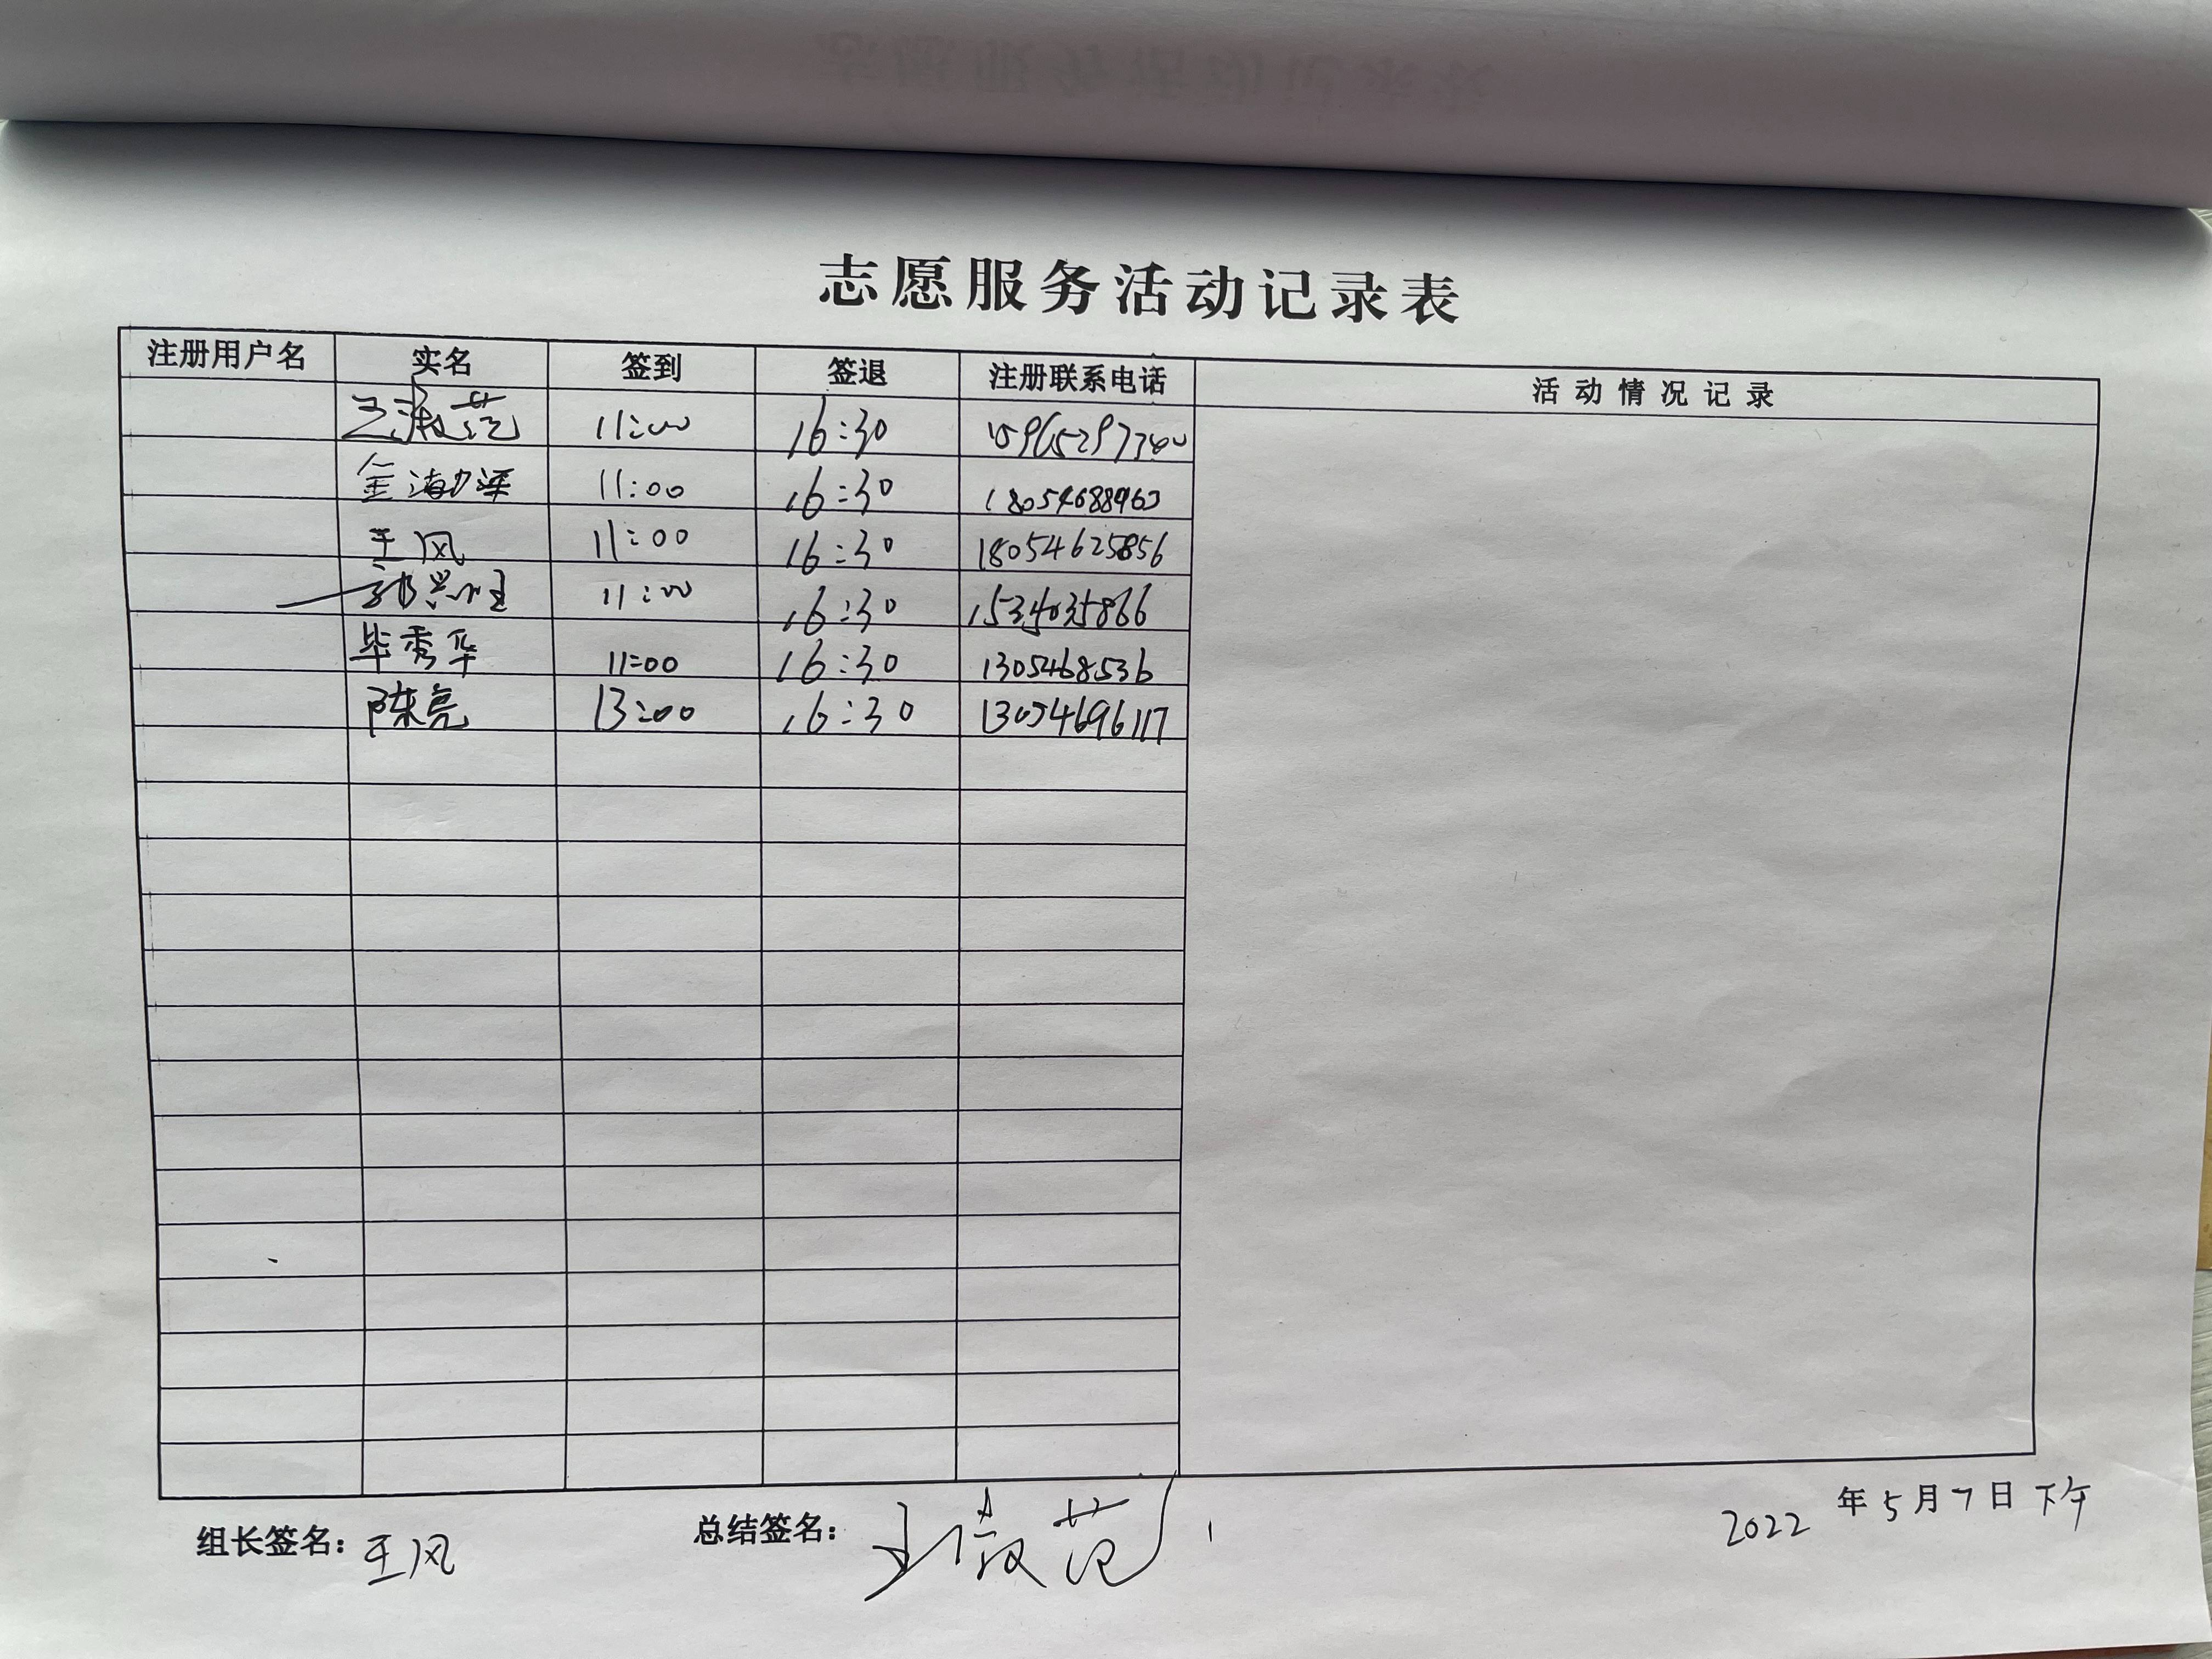 志愿服务活动记录表
注册用户名 实名 签到 签退 注册联系电话 活动情况记录
王淑范 11:00 16:30
金海 11:00 16:30 18054688963
王风 11:00 16:30 18054625856
11:00 16:30
毕秀华 11:00 16:30 1305468536
陈亮 13:00 16:30 13054696117
组长签名：王风 总结签名：王淑范 2022年5月7日下午